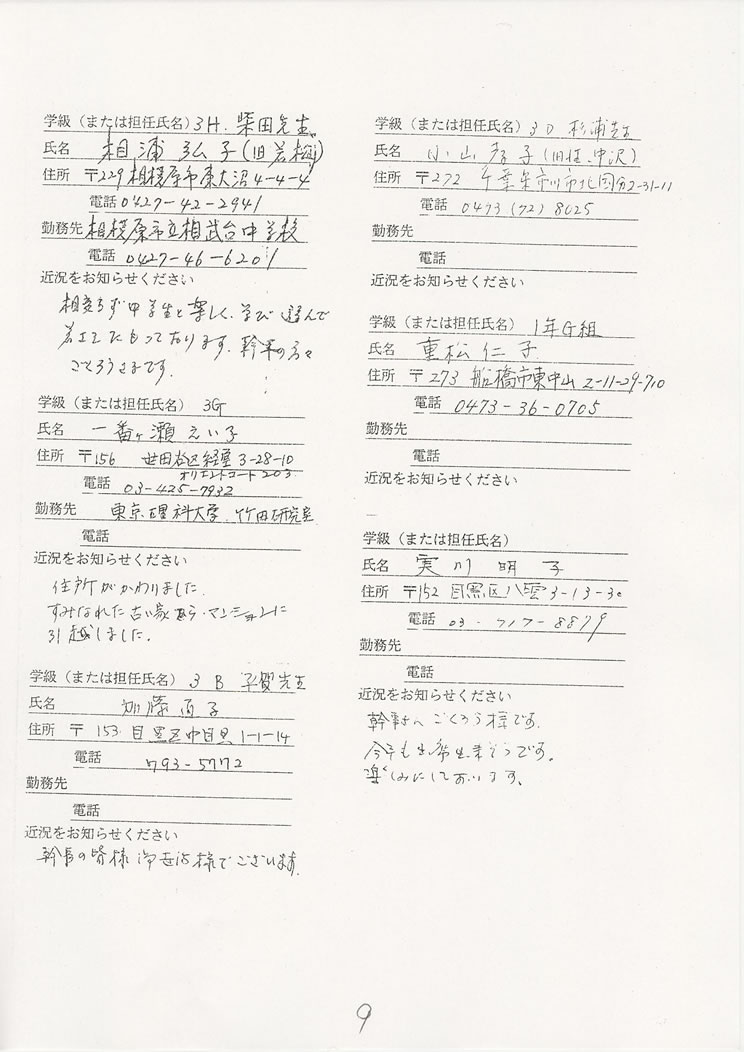 学級（または担任氏名）3H. 柴田先生
氏名 相浦弘子(旧若梅)
住所 〒229 相模原市東大沼4-4-4
電話 0427-42-2941
勤務先 相模原市立相武台中学校
電話 0427-46-6201
近況をお知らせください
相変らず中学生と楽しく、学び 遊んで
若さをたもっております。幹事の方々
ごくろうさまです。
学級（または担任氏名） 3G
氏名 一番ヶ瀬 えい子
住所 〒156 世田谷区経堂 3-28-10
オリエントコート203
電話 03-425-7932
勤務先 東京理科大学、竹田研究室
電話
近況をお知らせください
住所がかわりました。
すみなれた古い家から・マンションに
引越しました。
学級（または担任氏名）3 B 先生
氏名 加藤 子
住所 〒 153 目黒区中目黒 1-1-14
電話 793-5772
勤務先
電話
近況をお知らせください
幹事の皆様 御世話様でございます。
学級（または担任氏名）3D 杉浦先生
氏名 小山 孝子(旧姓、中沢)
住所 〒272 千葉県市川市北国分2-31-11
電話 0473 (72) 8025
勤務先
電話
近況をお知らせください
学級（または担任氏名）1年G組
氏名 重松 仁子
住所 〒273 船橋市東中山 2-11-29-710
電話 0473-36-0705
勤務先
電話
近況をお知らせください
学級（または担任氏名）
氏名 実川 明子
住所 〒152 目黒区八雲3-13-30
電話 03-717-8879
勤務先
電話
近況をお知らせください
幹事さん ごくろう様です。
今年も出席出来そうです。
楽しみにしております。
9